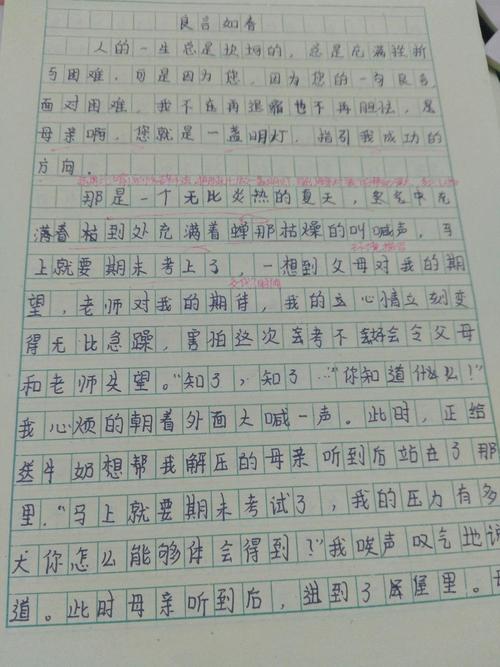 良言如香
人的一生总是坎坷的，总是充满挫折
与困难，可是因为您，因为您的一句良言，
面对困难，我不在再退缩也不再胆怯，是
母亲啊，您就是一盏明灯，指引我成功的
方向。
那是一个无比炎热的夏天，空气中充
满着 到处充满着蝉那枯燥的叫喊声，马
上就要期末考上了，一想到父母对我的期
望，老师对我的期待，我的 心情立刻变
得无比急躁，害怕这次 考不 好会令父母
和老师失望。“知了，知了…”“你知道什么！”
我心烦的朝着外面大喊一声。此时，正给
送牛奶想帮我解压的母亲听到后站在了那
里。“马上就要期末考试了，我的压力有多
大你怎么能够体会得到？”我唉声叹气地说
道。此时母亲听到后，进到了 里。